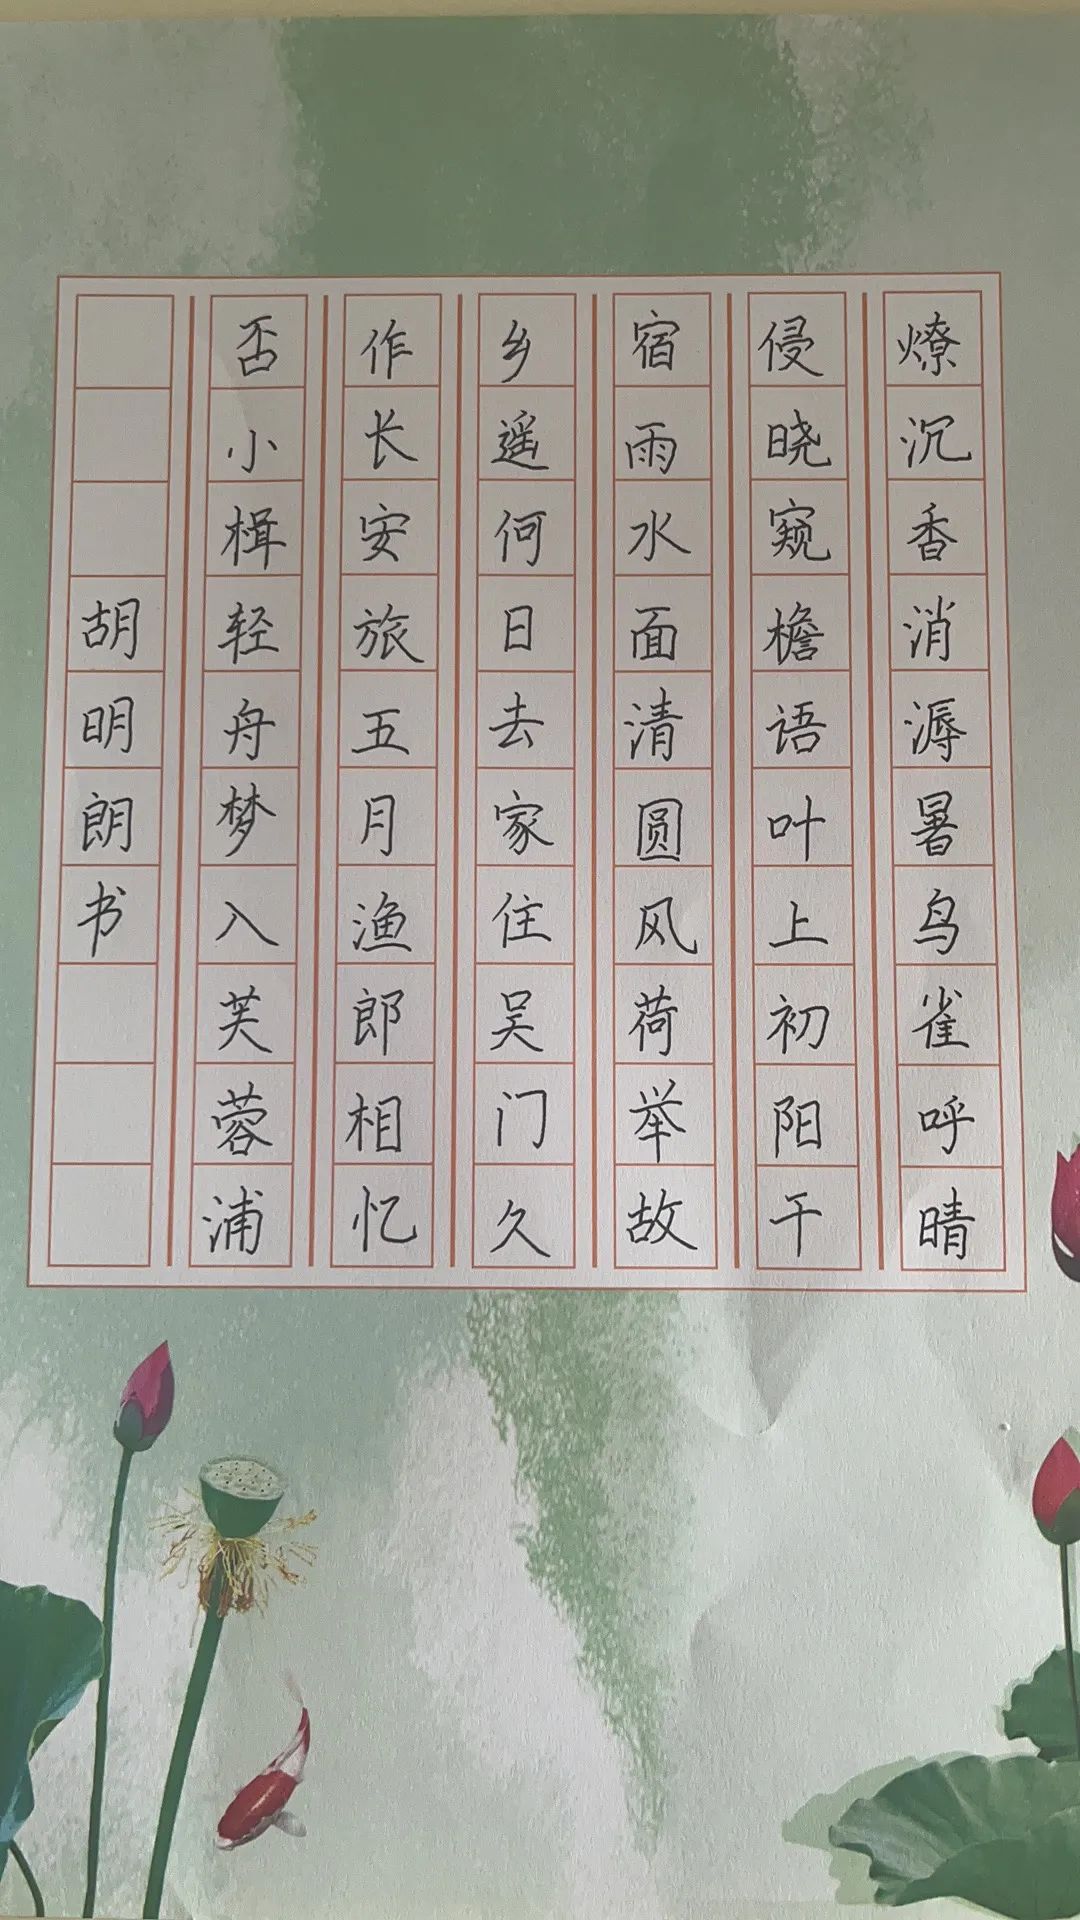 燎沉香消溽暑鸟雀呼晴
侵晓窥檐语叶上初阳干
宿雨水面清圆风荷举故
乡遥何日去家住吴门久
作长安旅五月渔郎相忆
否小楫轻舟梦入芙蓉浦
胡明朗书